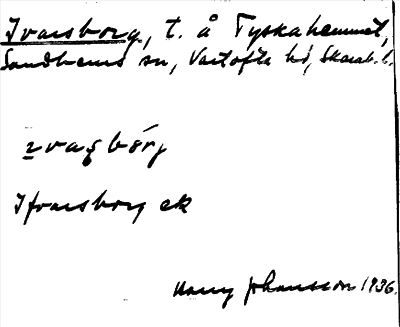 Ivarsborg, t. å Tyskahemmet,
Sandhems sn, Vartofte hd, Skarab. l.
ivaʂbórj
Ifvarsborg ek
Harry Johansson 1936.